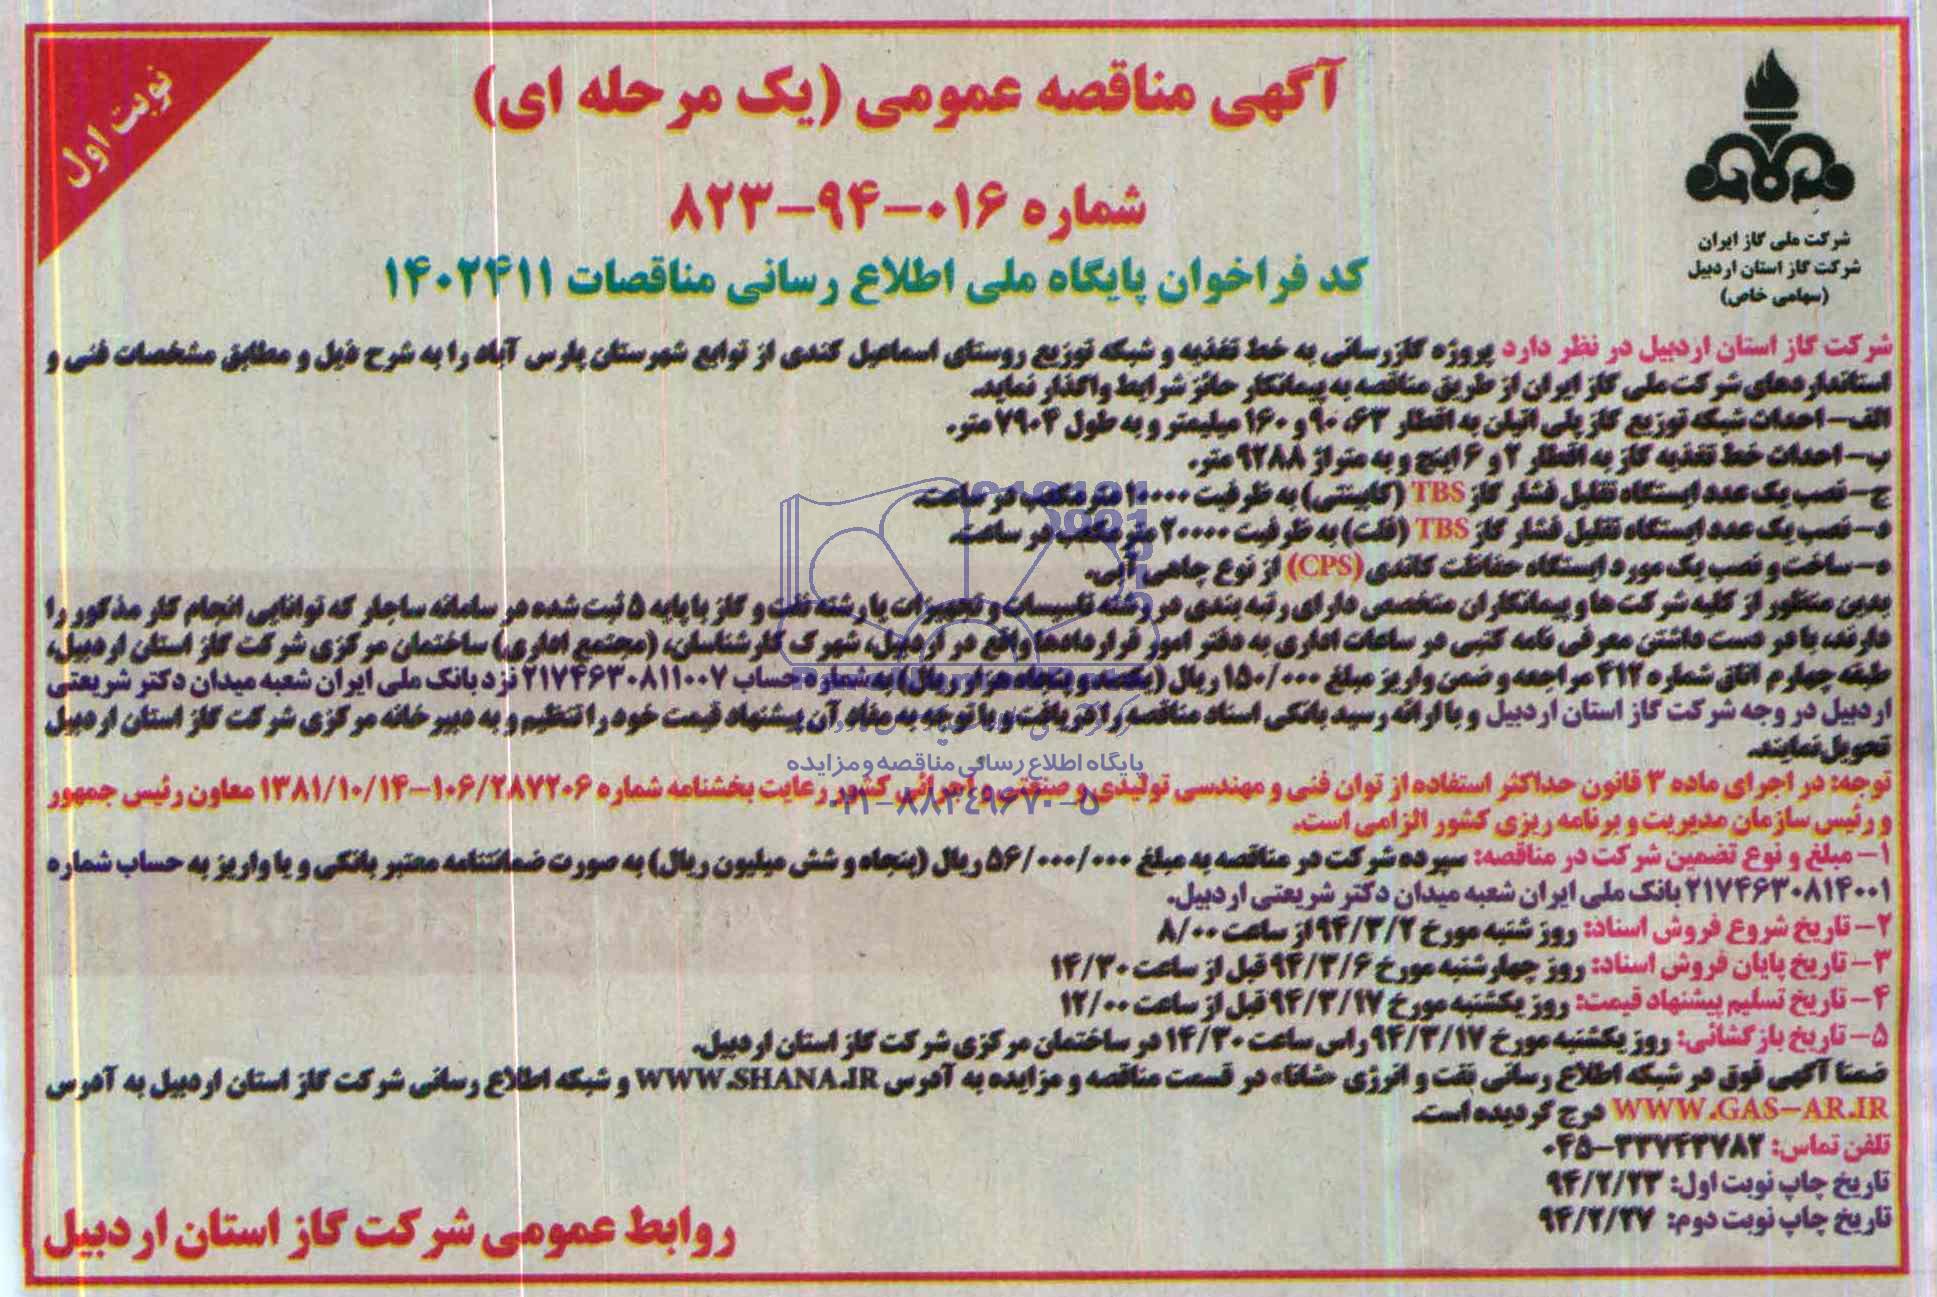 نوبت اول
آگهی مناقصه عمومی (یک مرحله ای)
شماره ۰۱۶-۹۴-۸۲۳
کد فراخوان پایگاه ملی اطلاع رسانی مناقصات ۱۴۰۲۴۱۱
شرکت ملی گاز ایران
شرکت گاز استان اردبیل
(سهامی خاص)
شرکت گاز استان اردبیل در نظر دارد پروژه گازرسانی به خط تغذیه و شبکه توزیع روستای اسماعیل کندی از توابع شهرستان پارس آباد را به شرح ذیل و مطابق مشخصات فنی و
استانداردهای شرکت ملی گاز ایران از طریق مناقصه به پیمانکار حائز شرایط واگذار نماید.
الف- احداث شبکه توزیع گاز پلی اتیلن به اقطار ۶۳، ۹۰ و ۱۶۰ میلیمتر و به طول ۷۹۰۴ متر.
ب- احداث خط تغذیه گاز به اقطار ۲ و ۶ اینچ و به متراژ ۹۲۸۸ متر.
ج- نصب یک عدد ایستگاه تقلیل فشار گاز TBS (کابینتی) به ظرفیت ۱۰۰۰۰ متر مکعب در ساعت.
د- نصب یک عدد ایستگاه تقلیل فشار گاز TBS (فلت) به ظرفیت ۲۰۰۰۰ متر مکعب در ساعت.
ه- ساخت و نصب یک مورد ایستگاه حفاظت کاتدی (CPS) از نوع چاهی آبی.
بدین منظور از کلیه شرکت ها و پیمانکاران متخصص دارای رتبه بندی در رشته تاسیسات و تجهیزات یا رشته نفت و گاز با پایه ۵ ثبت شده در سامانه ساجار که توانایی انجام کار مذکور را
دارند، با در دست داشتن معرفی نامه کتبی در ساعات اداری به دفتر امور قراردادها واقع در اردبیل، شهرک کارشناسان، (مجتمع اداری) ساختمان مرکزی شرکت گاز استان اردبیل،
طبقه چهارم اتاق شماره ۴۱۲ مراجعه و ضمن واریز مبلغ ۱۵۰/۰۰۰ ریال (یکصد و پنجاه هزار ریال) به شماره حساب ۲۱۷۴۶۳۰۸۱۱۰۰۷ نزد بانک ملی ایران شعبه میدان دکتر شریعتی
اردبیل در وجه شرکت گاز استان اردبیل و با ارائه رسید بانکی اسناد مناقصه را دریافت و با توجه به مفاد آن پیشنهاد قیمت خود را تنظیم و به دبیرخانه مرکزی شرکت گاز استان اردبیل
تحویل نمایند.
پایگاه اطلاع رسانی مناقصه و مزایده
توجه: در اجرای ماده ۳ قانون حداکثر استفاده از توان فنی و مهندسی تولیدی و صنعتی و اجرائی کشور رعایت بخشنامه شماره ۱۰۶/۲۸۷۲۰۶-۱۳۸۱/۱۰/۱۴ معاون رئیس جمهور
۰۲۱-۸۸۳۴۹۶۷۰-۵
و رئیس سازمان مدیریت و برنامه ریزی کشور الزامی است.
۱- مبلغ و نوع تضمین شرکت در مناقصه: سپرده شرکت در مناقصه به مبلغ ۵۶/۰۰۰/۰۰۰ ریال (پنجاه و شش میلیون ریال) به صورت ضمانتنامه معتبر بانکی و یا واریز به حساب شماره
۲۱۷۴۶۳۰۸۱۴۰۰۱ بانک ملی ایران شعبه میدان دکتر شریعتی اردبیل.
۲- تاریخ شروع فروش اسناد: روز شنبه مورخ ۹۴/۳/۲ از ساعت ۸/۰۰
۳- تاریخ پایان فروش اسناد: روز چهارشنبه مورخ ۹۴/۳/۶ قبل از ساعت ۱۴/۳۰
۴- تاریخ تسلیم پیشنهاد قیمت: روز یکشنبه مورخ ۹۴/۳/۱۷ قبل از ساعت ۱۲/۰۰
۵- تاریخ بازگشائی: روز یکشنبه مورخ ۹۴/۳/۱۷ راس ساعت ۱۴/۳۰ در ساختمان مرکزی شرکت گاز استان اردبیل.
ضمنا آگهی فوق در شبکه اطلاع رسانی نفت و انرژی «شانا» در قسمت مناقصه و مزایده به آدرس WWW.SHANA.IR و شبکه اطلاع رسانی شرکت گاز استان اردبیل به آدرس
WWW.GAS-AR.IR درج گردیده است.
تلفن تماس: ۳۳۷۴۳۷۸۲-۰۴۵
تاریخ چاپ نوبت اول: ۹۴/۲/۲۳
تاریخ چاپ نوبت دوم: ۹۴/۲/۲۷
روابط عمومی شرکت گاز استان اردبیل